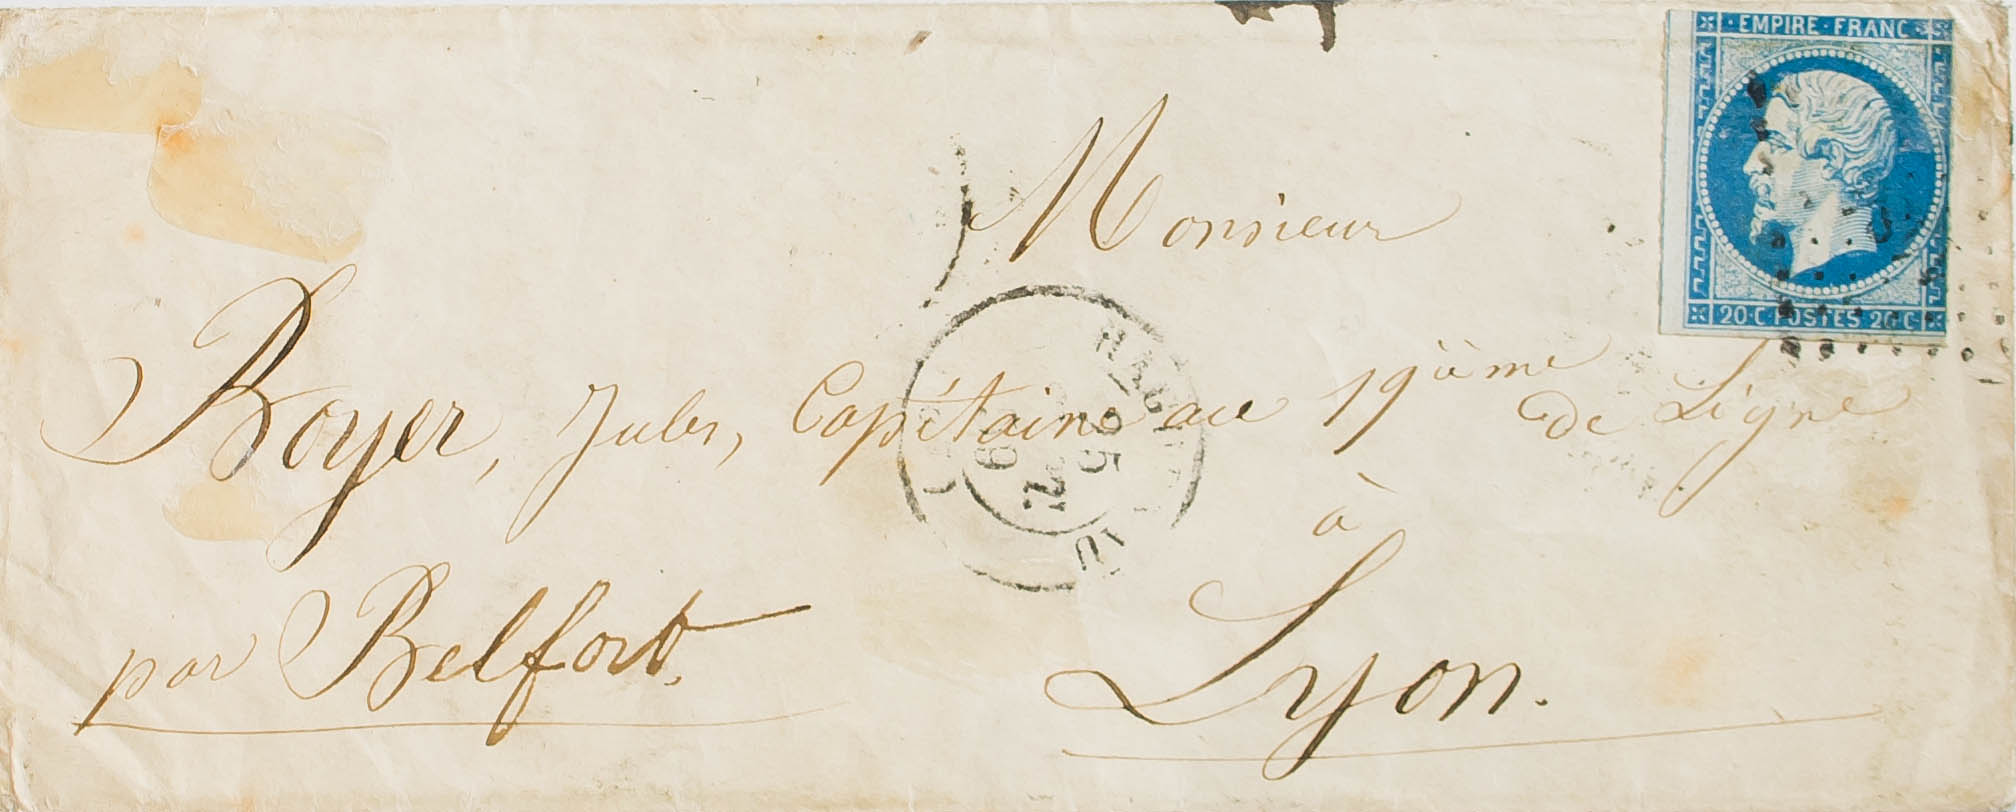 EMPIRE · FRANC
20 · C POSTES 20 C
Monsieur
Boyer, Jules, Capitaine au 19ième
de Ligne
à
Lyon.
par Belfort.
25